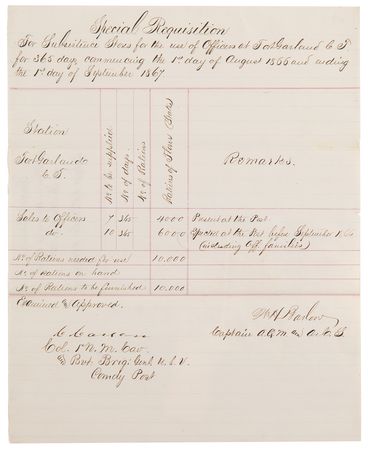 Special Requisition
For Subsistence Stores for the use of Officers at Fort Garland C T
for 365 days, commencing the 1st day of August 1866 and ending
the 1st day of September 1867.
Station
Fort Garland
C. T.
No. to be supplied
No. of days.
No. of Rations
Rations of Flour
Remarks.
Sales to Officers 7 365 4000 Present at the Post.
do. 10 365 6000 Expected at the Post before September
(including Off. families)
No. of Rations needed for use 10.000
No. of rations on hand
No. of Rations to be furnished 10.000
Examined & Approved.
C. Carson
Col. 1st N. M. Cav.
& Bvt. Brig. Genl. U. S. V.
Comdg Post
Barlow
Captain A. Q. M. & A. C. S.